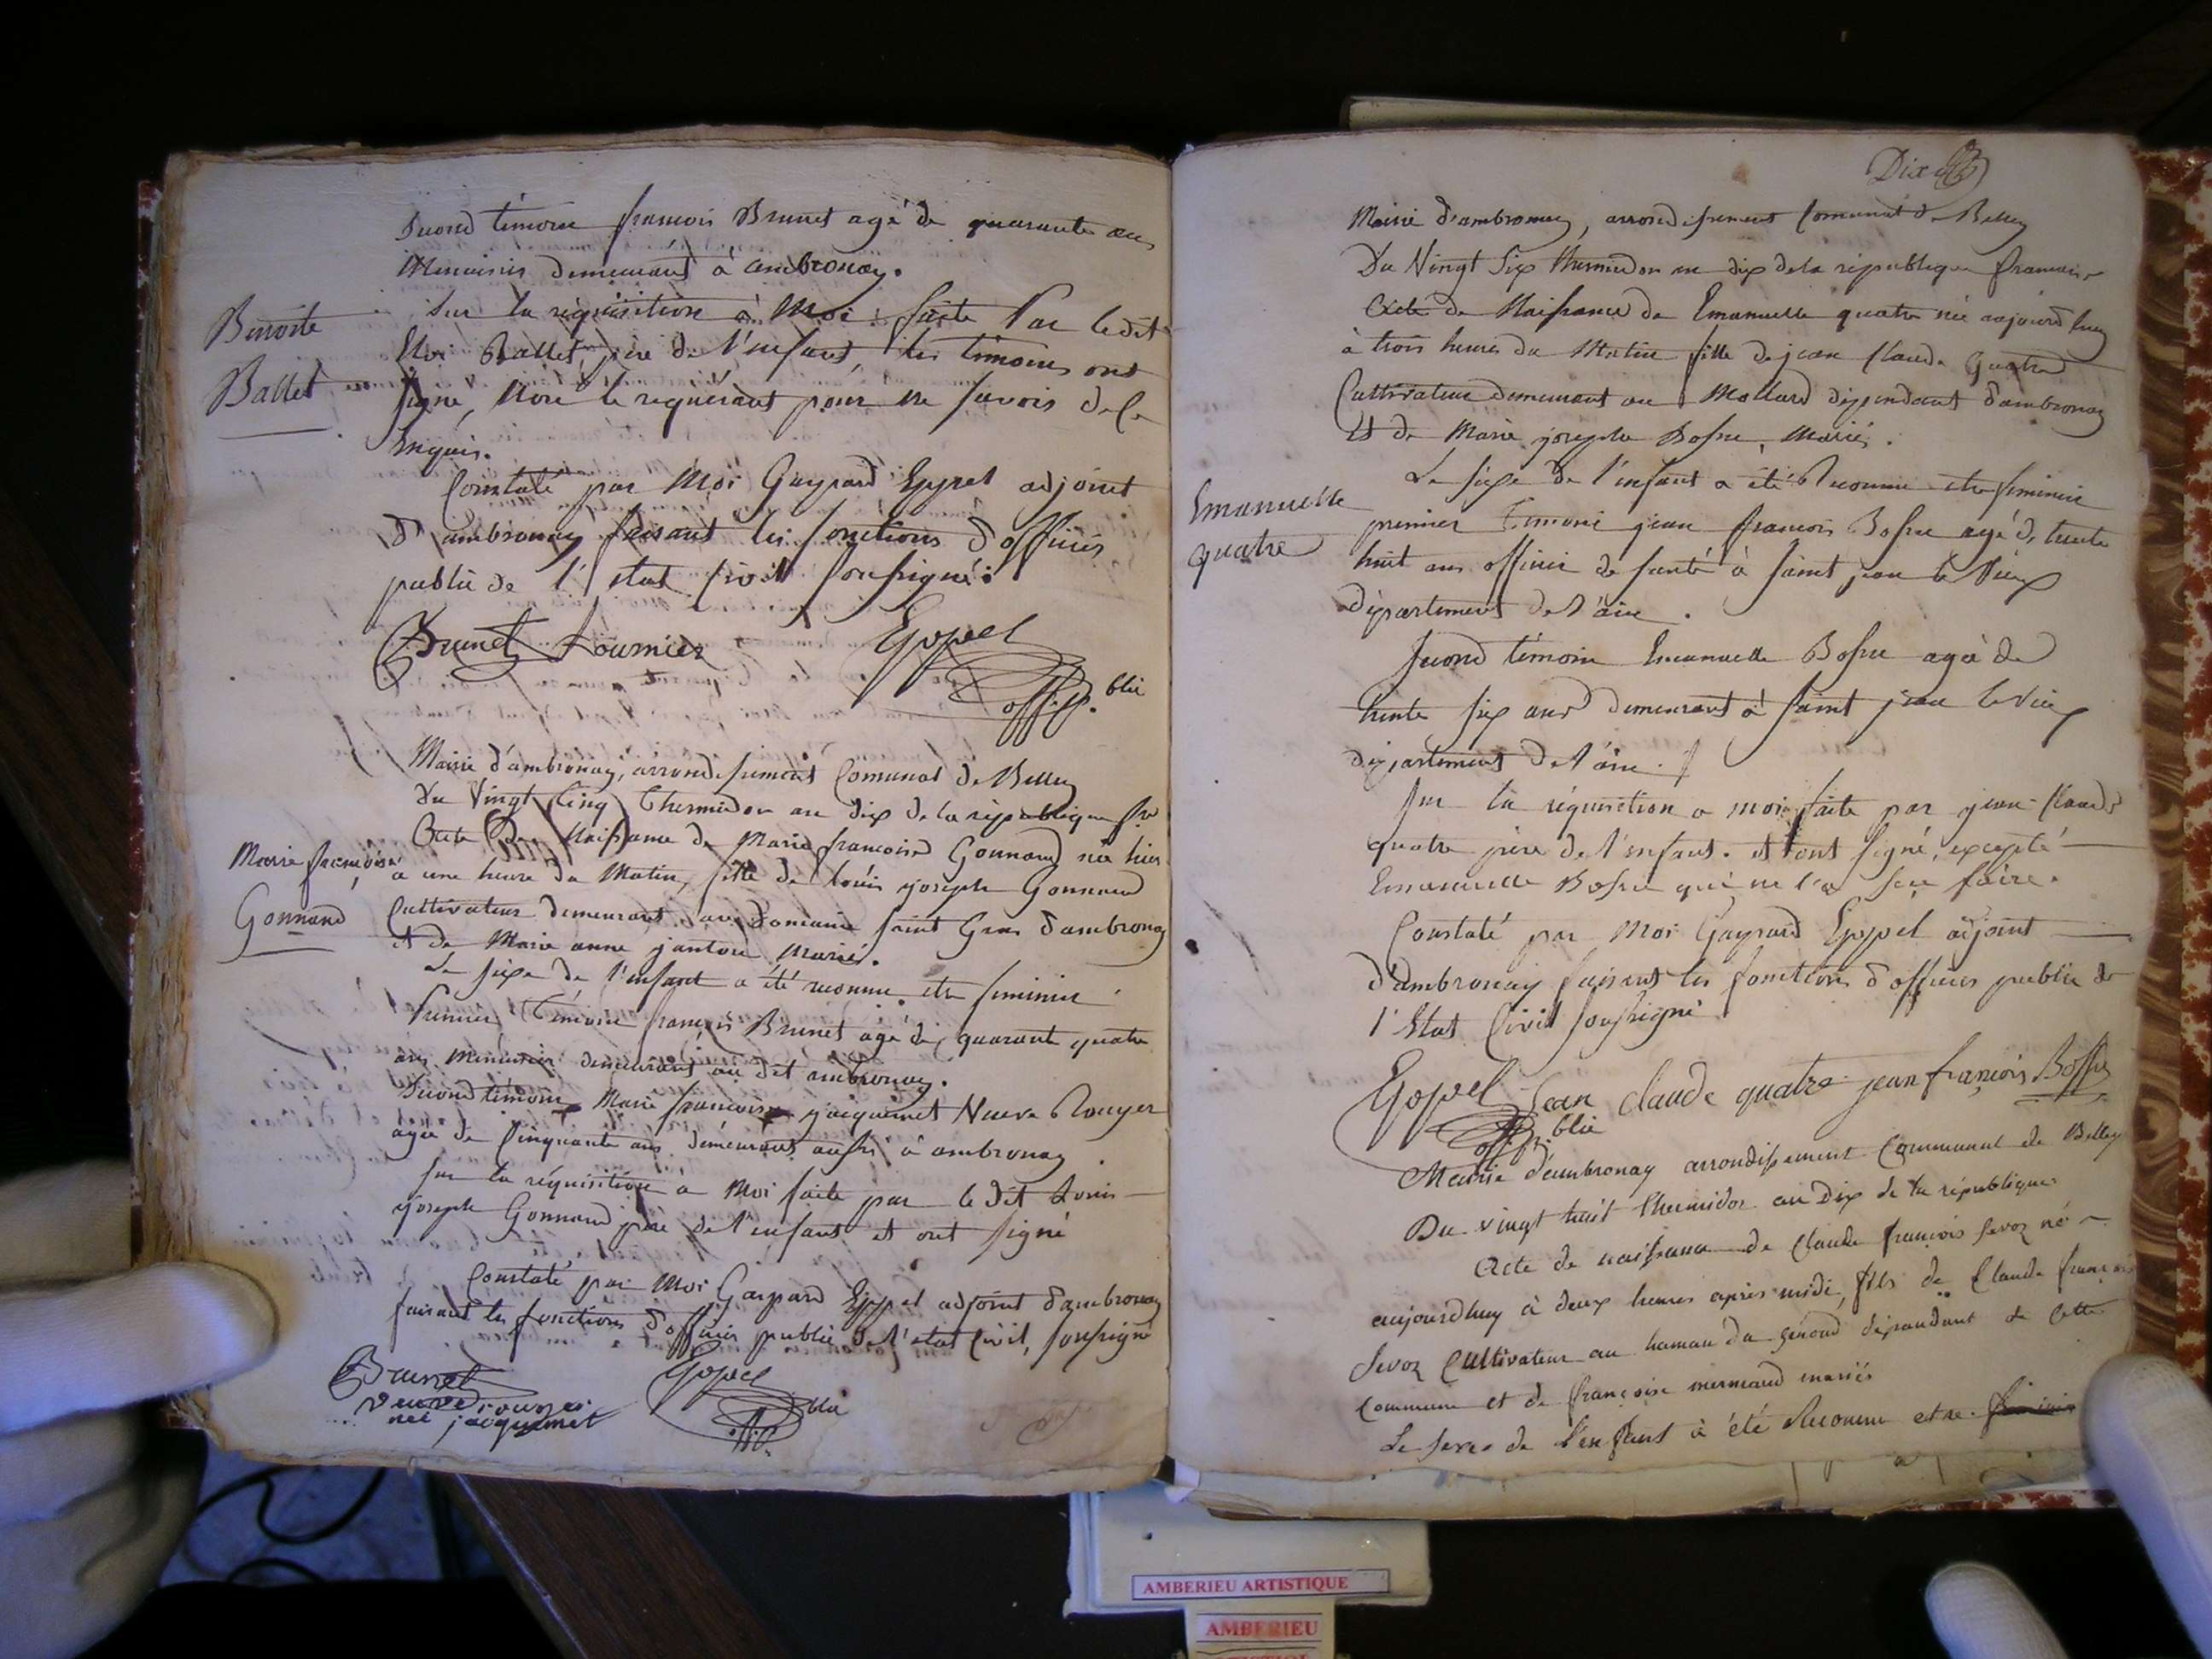 Second témoin francois Brunet agé de quarante ans
Menuisier demeurant à ambronay.
Benoite
Ballet
Sur la réquisition à Moi faite Par ledit
Ballet, père de l'enfant, les témoins ont
signé, Non le requérant pour ne savoir de ce
Enquis.
Constaté par Moi Gaspard Eppel adjoint
d'ambronay faisant les fonctions d'officier
public de l'état Civil soussigné:
Brunet Fournier Eppel
off. p. blic
Mairie d'ambronay, arrondissement Comunal de Belley
Du Vingt Cinq Thermidor an dix de la république fse
Marie françoise
Gonnand
Acte de Naissance de Marie francoise Gonnand née hier
à une heure du Matin, fille de Louis joseph Gonnand
Cultivateur demeurant au Domaine saint Gras d'ambronay
et de Marie anne jantou Mariés.
Le sixe de l'enfant a été reconnu etre feminin
Premier Témoin françois Brunet agé de quarante quatre
ans Menuisier demeurant au dit ambronay.
Second témoin Marie francoise jacquemet Veuve Rouyer
agée de Cinquante ans demeurant aussi à ambronay
sur la réquisition a Moi faite par le dit Louis
joseph Gonnand père de l'enfant et ont signé
Constaté par Moi Gaspard Eppel adjoint d'ambronay
faisant les fonctions d'officier public de l'état Civil, soussigné
Brunet Eppel
veuve rouyer blic
née jacquemet
Dix
Mairie d'ambronay, arrondissement Comunal de Belley
Du Vingt Six thermidor an dix de la république francaise
Acte de Naissance de Emanuelle quatre née aujourd huy
à trois heures du Matin fille de jean Claude Quatre
Cultivateur demeurant au Mollard dependant d'ambronay
Et de Marie josephe Bossu, Mariés.
Emanuelle
quatre
Le sixe de l'enfant a été Reconnu etre feminin
premier Temoin jean francois Bossu agé de trente
huit ans officier de santé à saint jean le Vieux
département de l'ain.
Second témoin Emanuelle Bossu agée de
trente six ans demeurant à saint jean le Vieux
département de l'ain.
Sur la réquisition a moi faite par jean Claude
quatre père de l'enfant. et ont signé, excepté
Emanuelle Bossu qui ne l'a seu faire.
Constaté par Moi Gaspard Eppel adjoint
d'ambronay faisant les fonctions d'officier public de
l'Etat Civil soussigné
Eppel Jean claude quatre jean françois Bossu
off. p. blic
Mairie d'ambronay arrondissement Communal de Belley
Du vingt huit thermidor an Dix de la république
Acte de naissance de Claude françois Sevoz né
aujourdhuy à deux heures après midi, fils de Claude françois
Sevoz Cultivateur au hamau du genoud dépandant de Cette
Commune et de françoise mermand mariés
Le sexe de l'enfant à été Reconnu etre feminin
AMBERIEU ARTISTIQUE
AMBERIEU